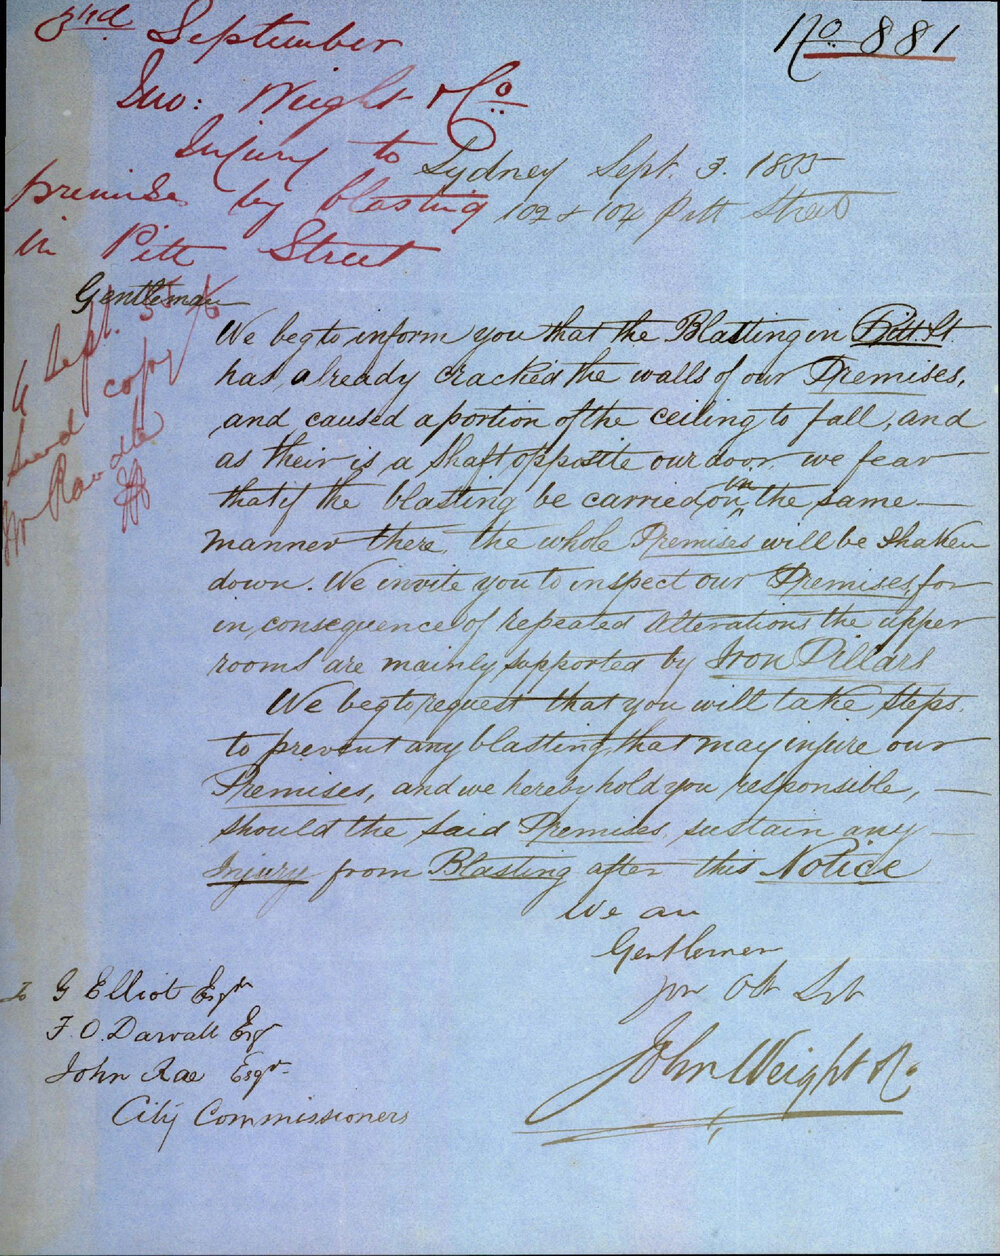 3rd September
No. 881
Jno: Weight & Co.
Injury to
premises by blasting
in Pitt Street
Sydney Sept. 3. 1855
102 & 104 Pitt Street
4 Sept. 55
Send copy
Mr Rawdle
Gentlemen
We beg to inform you that the Blasting in Pitt. St.
has already cracked the walls of our Premises,
and caused a portion of the ceiling to fall, and
as their is a Shaft opposite our door, we fear
that if the blasting be carried on in the same
manner there, the whole Premises will be shaken
down. We invite you to inspect our Premises, for
in consequence of repeated Alterations the upper
rooms are mainly supported by Iron Pillars
We beg to request that you will take steps
to prevent any blasting, that may injure our
Premises, and we hereby hold you responsible,
should the said Premises, sustain any
Injury from Blasting after this Notice
We are
Gentlemen
your Obt Svt
John Weight & Co
To G Elliot Esqr
F. O. Darvall Esq
John Rae Esqr.
City Commissioners